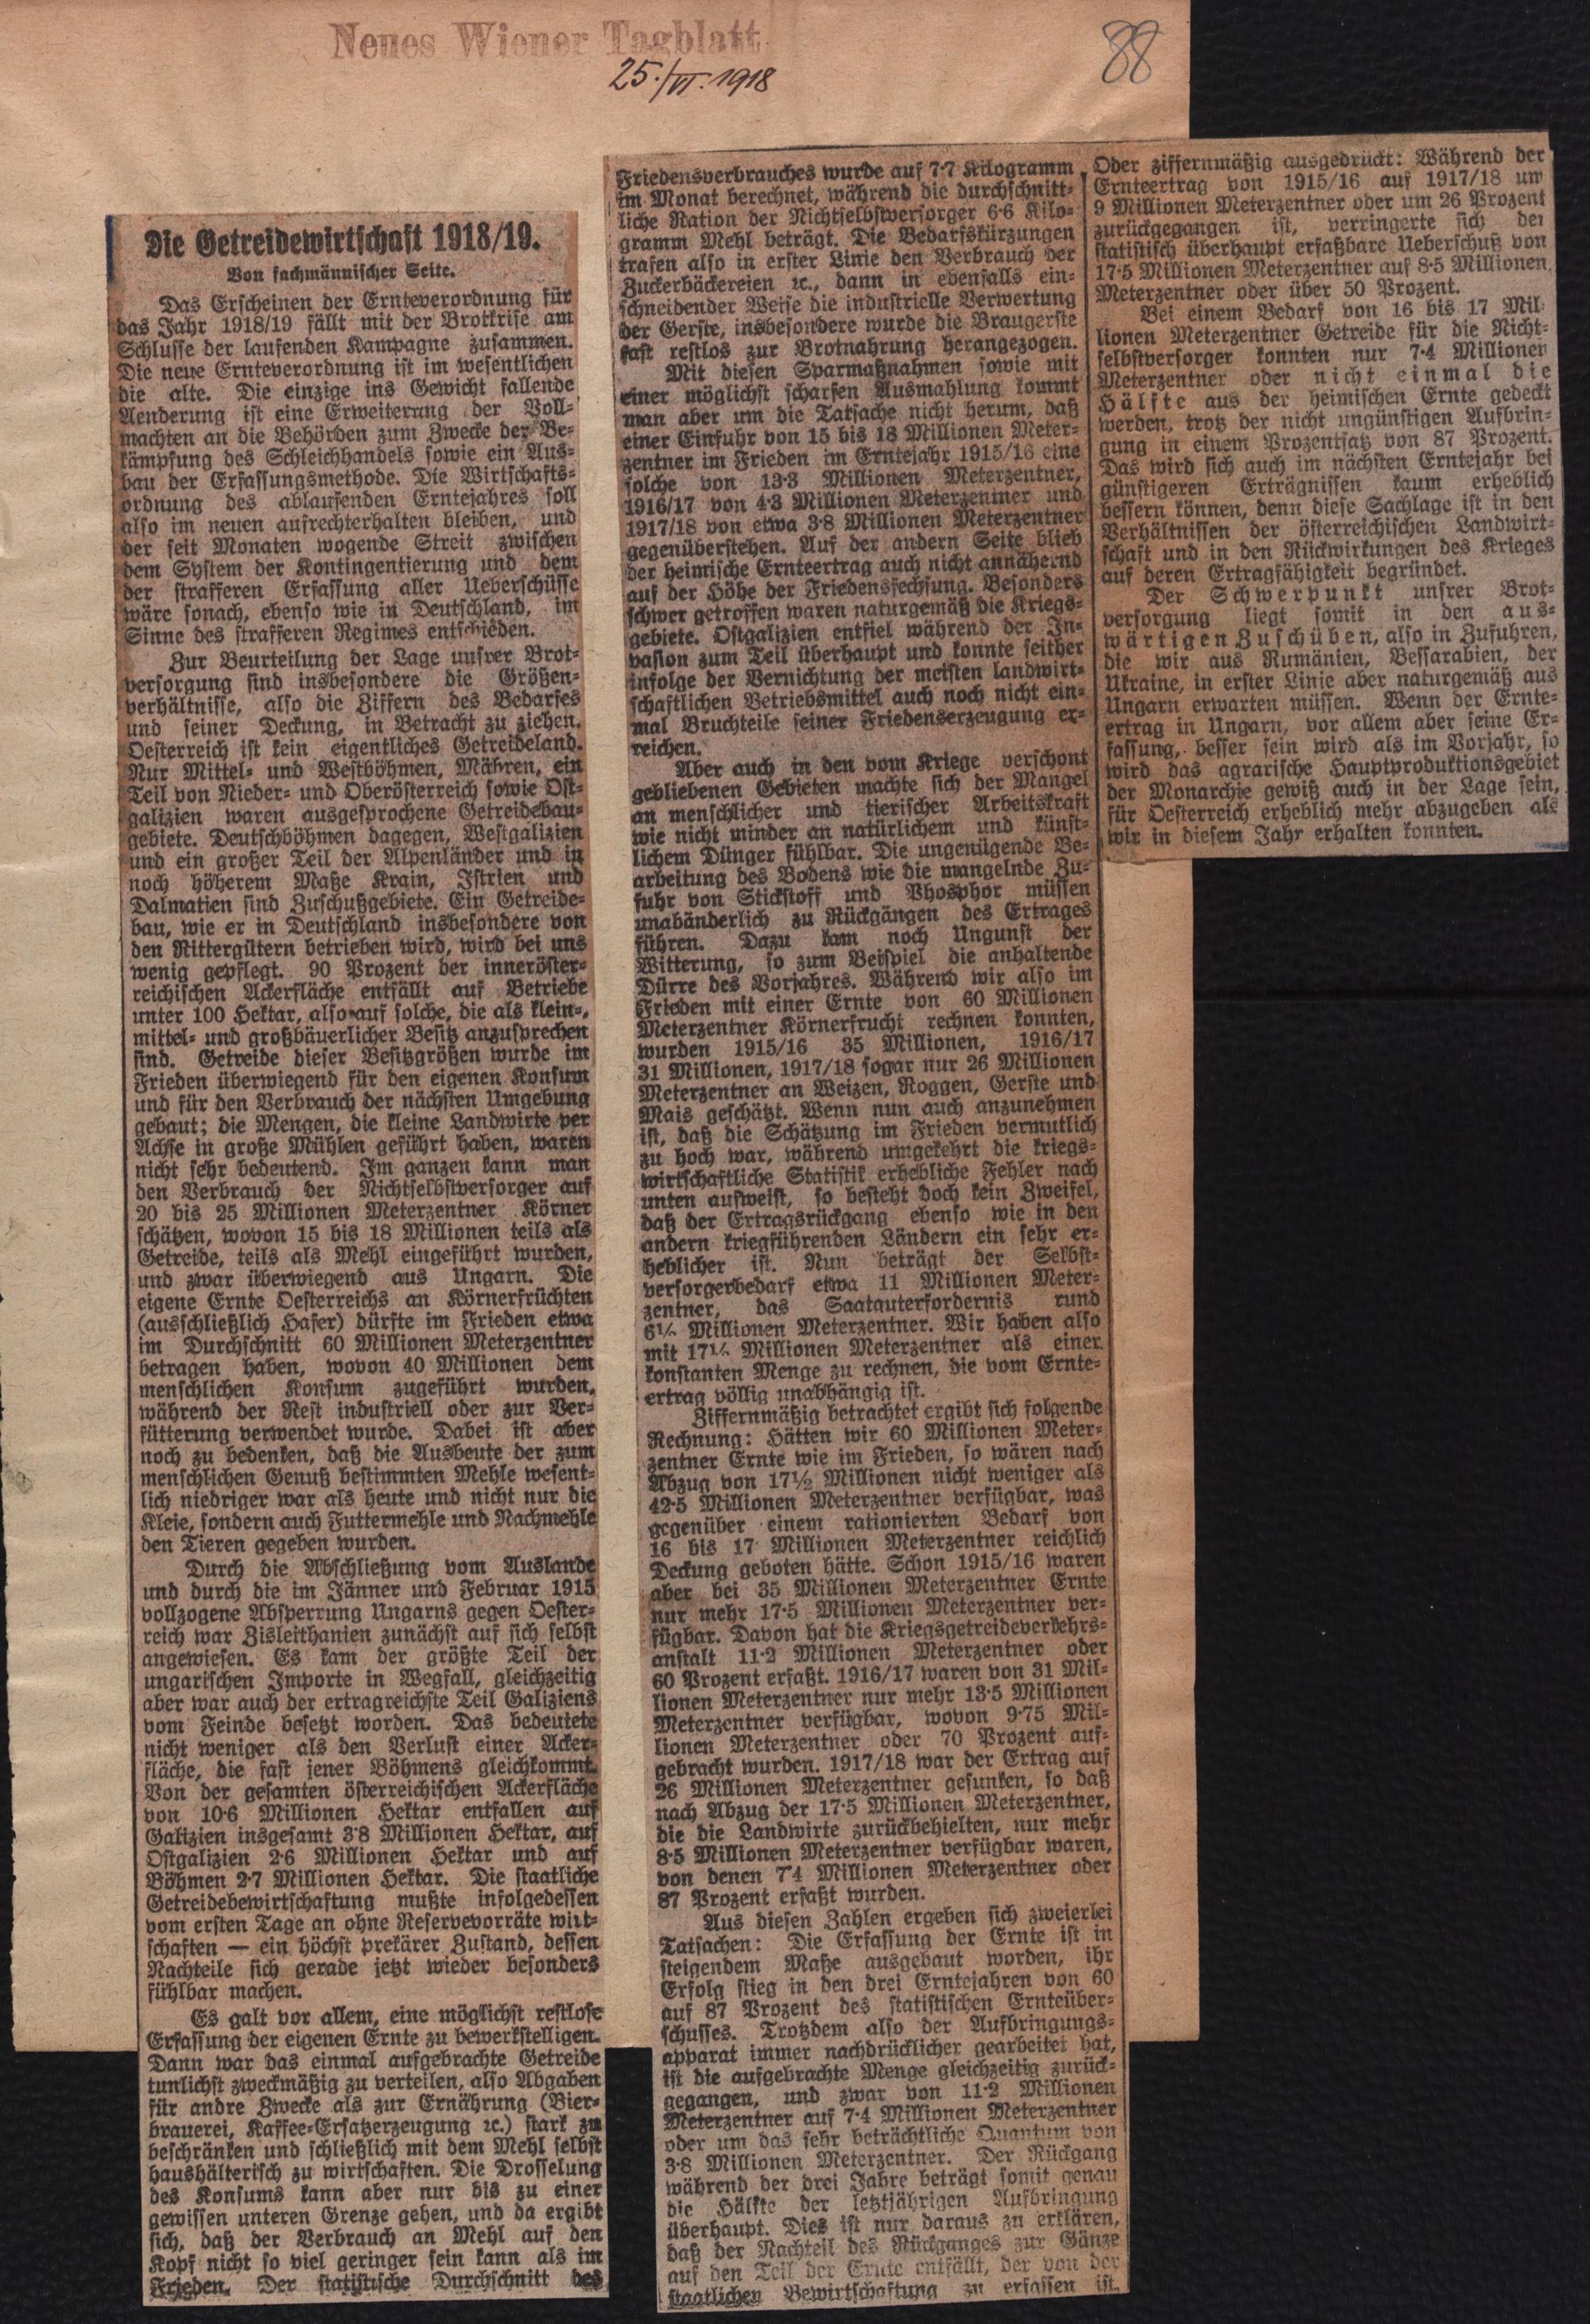 Neues Wiener Tagblatt
25./VI. 1918
88
Die Getreidewirtschaft 1918/19.
Von fachmännischer Seite.
Das Erscheinen der Ernteverordnung für
das Jahr 1918/19 fällt mit der Brotkrise am
Schlusse der laufenden Kampagne zusammen.
Die neue Ernteverordnung ist im wesentlichen
die alte. Die einzige ins Gewicht fallende
Aenderung ist eine Erweiterung der Voll-
machten an die Behörden zum Zwecke der Be-
kämpfung des Schleichhandels sowie ein Aus-
bau der Erfassungsmethode. Die Wirtschafts-
ordnung des ablaufenden Erntejahres soll
also im neuen aufrechterhalten bleiben, und
der seit Monaten wogende Streit zwischen
dem System der Kontingentierung und dem
der strafferen Erfassung aller Ueberschüsse
wäre sonach, ebenso wie in Deutschland, im
Sinne des strafferen Regimes entschieden.
Zur Beurteilung der Lage unsrer Brot-
versorgung sind insbesondere die Größen-
verhältnisse, also die Ziffern des Bedarfes
und seiner Deckung, in Betracht zu ziehen.
Oesterreich ist kein eigentliches Getreideland.
Nur Mittel- und Westböhmen, Mähren, ein
Teil von Nieder- und Oberösterreich sowie Ost-
galizien waren ausgesprochene Getreidebau-
gebiete. Deutschböhmen dagegen, Westgalizien
und ein großer Teil der Alpenländer und in
noch höherem Maße Krain, Istrien und
Dalmatien sind Zuschußgebiete. Ein Getreide-
bau, wie er in Deutschland insbesondere von
den Rittergütern betrieben wird, wird bei uns
wenig gepflegt. 90 Prozent der inneröster-
reichischen Ackerfläche entfällt auf Betriebe
unter 100 Hektar, also auf solche, die als klein-,
mittel- und großbäuerlicher Besitz anzusprechen
sind. Getreide dieser Besitzgrößen wurde im
Frieden überwiegend für den eigenen Konsum
und für den Verbrauch der nächsten Umgebung
gebaut; die Mengen, die kleine Landwirte per
Achse in große Mühlen geführt haben, waren
nicht sehr bedeutend. Im ganzen kann man
den Verbrauch der Nichtselbstversorger auf
20 bis 25 Millionen Meterzentner Körner
schätzen, wovon 15 bis 18 Millionen teils als
Getreide, teils als Mehl eingeführt wurden,
und zwar überwiegend aus Ungarn. Die
eigene Ernte Oesterreichs an Körnerfrüchten
(ausschließlich Hafer) dürfte im Frieden etwa
im Durchschnitt 60 Millionen Meterzentner
betragen haben, wovon 40 Millionen dem
menschlichen Konsum zugeführt wurden,
während der Rest industriell oder zur Ver-
fütterung verwendet wurde. Dabei ist aber
noch zu bedenken, daß die Ausbeute der zum
menschlichen Genuß bestimmten Mehle wesent-
lich niedriger war als heute und nicht nur die
Kleie, sondern auch Futtermehle und Nachmehle
den Tieren gegeben wurden.
Durch die Abschließung vom Auslande
und durch die im Jänner und Februar 1915
vollzogene Absperrung Ungarns gegen Oester-
reich war Zisleithanien zunächst auf sich selbst
angewiesen. Es kam der größte Teil der
ungarischen Importe in Wegfall, gleichzeitig
aber war auch der ertragreichste Teil Galiziens
vom Feinde besetzt worden. Das bedeutete
nicht weniger als den Verlust einer Acker-
fläche, die fast jener Böhmens gleichkommt.
Von der gesamten österreichischen Ackerfläche
von 10·6 Millionen Hektar entfallen auf
Galizien insgesamt 3·8 Millionen Hektar, auf
Ostgalizien 2·6 Millionen Hektar und auf
Böhmen 2·7 Millionen Hektar. Die staatliche
Getreidebewirtschaftung mußte infolgedessen
vom ersten Tage an ohne Reservevorräte wirt-
schaften — ein höchst prekärer Zustand, dessen
Nachteile sich gerade jetzt wieder besonders
fühlbar machen.
Es galt vor allem, eine möglichst restlose
Erfassung der eigenen Ernte zu bewerkstelligen.
Dann war das einmal aufgebrachte Getreide
tunlichst zweckmäßig zu verteilen, also Abgaben
für andre Zwecke als zur Ernährung (Bier-
brauerei, Kaffee-Ersatzerzeugung ꝛc.) stark zu
beschränken und schließlich mit dem Mehl selbst
haushälterisch zu wirtschaften. Die Drosselung
des Konsums kann aber nur bis zu einer
gewissen unteren Grenze gehen, und da ergibt
sich, daß der Verbrauch an Mehl auf den
Kopf nicht so viel geringer sein kann als im
Frieden. Der statistische Durchschnitt des
Friedensverbrauches wurde auf 7·7 Kilogramm
im Monat berechnet, während die durchschnitt-
liche Ration der Nichtselbstversorger 6·6 Kilo-
gramm Mehl beträgt. Die Bedarfskürzungen
trafen also in erster Linie den Verbrauch der
Zuckerbäckereien ꝛc., dann in ebenfalls ein-
schneidender Weise die industrielle Verwertung
der Gerste, insbesondere wurde die Braugerste
fast restlos zur Brotnahrung herangezogen.
Mit diesen Sparmaßnahmen sowie mit
einer möglichst scharfen Ausmahlung kommt
man aber um die Tatsache nicht herum, daß
einer Einfuhr von 15 bis 18 Millionen Meter-
zentner im Frieden im Erntejahr 1915/16 eine
solche von 13·3 Millionen Meterzentner,
1916/17 von 4·3 Millionen Meterzentner und
1917/18 von etwa 3·8 Millionen Meterzentner
gegenüberstehen. Auf der andern Seite blieb
der heimische Ernteertrag auch nicht annähernd
auf der Höhe der Friedensfechsung. Besonders
schwer getroffen waren naturgemäß die Kriegs-
gebiete. Ostgalizien entfiel während der In-
vasion zum Teil überhaupt und konnte seither
infolge der Vernichtung der meisten landwirt-
schaftlichen Betriebsmittel auch noch nicht ein-
mal Bruchteile seiner Friedenserzeugung er-
reichen.
Aber auch in den vom Kriege verschont
gebliebenen Gebieten machte sich der Mangel
an menschlicher und tierischer Arbeitskraft
wie nicht minder an natürlichem und künst-
lichem Dünger fühlbar. Die ungenügende Be-
arbeitung des Bodens wie die mangelnde Zu-
fuhr von Stickstoff und Phosphor müssen
unabänderlich zu Rückgängen des Ertrages
führen. Dazu kam noch Ungunst der
Witterung, so zum Beispiel die anhaltende
Dürre des Vorjahres. Während wir also im
Frieden mit einer Ernte von 60 Millionen
Meterzentner Körnerfrucht rechnen konnten,
wurden 1915/16 35 Millionen, 1916/17
31 Millionen, 1917/18 sogar nur 26 Millionen
Meterzentner an Weizen, Roggen, Gerste und
Mais geschätzt. Wenn nun auch anzunehmen
ist, daß die Schätzung im Frieden vermutlich
zu hoch war, während umgekehrt die kriegs-
wirtschaftliche Statistik erhebliche Fehler nach
unten aufweist, so besteht doch kein Zweifel,
daß der Ertragsrückgang ebenso wie in den
andern kriegführenden Ländern ein sehr er-
heblicher ist. Nun beträgt der Selbst-
versorgerbedarf etwa 11 Millionen Meter-
zentner, das Saatguterfordernis rund
6½ Millionen Meterzentner. Wir haben also
mit 17½ Millionen Meterzentner als einer
konstanten Menge zu rechnen, die vom Ernte-
ertrag völlig unabhängig ist.
Ziffernmäßig betrachtet ergibt sich folgende
Rechnung: Hätten wir 60 Millionen Meter-
zentner Ernte wie im Frieden, so wären nach
Abzug von 17½ Millionen nicht weniger als
42·5 Millionen Meterzentner verfügbar, was
gegenüber einem rationierten Bedarf von
16 bis 17 Millionen Meterzentner reichlich
Deckung geboten hätte. Schon 1915/16 waren
aber bei 35 Millionen Meterzentner Ernte
nur mehr 17·5 Millionen Meterzentner ver-
fügbar. Davon hat die Kriegsgetreideverkehrs-
anstalt 11·2 Millionen Meterzentner oder
60 Prozent erfaßt. 1916/17 waren von 31 Mil-
lionen Meterzentner nur mehr 13·5 Millionen
Meterzentner verfügbar, wovon 9·75 Mil-
lionen Meterzentner oder 70 Prozent auf-
gebracht wurden. 1917/18 war der Ertrag auf
26 Millionen Meterzentner gesunken, so daß
nach Abzug der 17·5 Millionen Meterzentner,
die die Landwirte zurückbehielten, nur mehr
8·5 Millionen Meterzentner verfügbar waren,
von denen 7·4 Millionen Meterzentner oder
87 Prozent erfaßt wurden.
Aus diesen Zahlen ergeben sich zweierlei
Tatsachen: Die Erfassung der Ernte ist in
steigendem Maße ausgebaut worden, ihr
Erfolg stieg in den drei Erntejahren von 60
auf 87 Prozent des statistischen Ernteüber-
schusses. Trotzdem also der Aufbringungs-
apparat immer nachdrücklicher gearbeitet hat,
ist die aufgebrachte Menge gleichzeitig zurück-
gegangen, und zwar von 11·2 Millionen
Meterzentner auf 7·4 Millionen Meterzentner
oder um das sehr beträchtliche Quantum von
3·8 Millionen Meterzentner. Der Rückgang
während der drei Jahre beträgt somit genau
die Hälfte der letztjährigen Aufbringung
überhaupt. Dies ist nur daraus zu erklären,
daß der Nachteil des Rückganges zur Gänze
auf den Teil der Ernte entfällt, der von der
staatlichen Bewirtschaftung zu erfassen ist.
Oder ziffernmäßig ausgedrückt: Während der
Ernteertrag von 1915/16 auf 1917/18 um
9 Millionen Meterzentner oder um 26 Prozent
zurückgegangen ist, verringerte sich der
statistisch überhaupt erfaßbare Ueberschuß von
17·5 Millionen Meterzentner auf 8·5 Millionen
Meterzentner oder über 50 Prozent.
Bei einem Bedarf von 16 bis 17 Mil-
lionen Meterzentner Getreide für die Nicht-
selbstversorger konnten nur 7·4 Millionen
Meterzentner oder nicht einmal die
Hälfte aus der heimischen Ernte gedeckt
werden, trotz der nicht ungünstigen Aufbrin-
gung in einem Prozentsatz von 87 Prozent.
Das wird sich auch im nächsten Erntejahr bei
günstigeren Erträgnissen kaum erheblich
bessern können, denn diese Sachlage ist in den
Verhältnissen der österreichischen Landwirt-
schaft und in den Rückwirkungen des Krieges
auf deren Ertragfähigkeit begründet.
Der Schwerpunkt unsrer Brot-
versorgung liegt somit in den aus-
wärtigen Zuschüben, also in Zufuhren,
die wir aus Rumänien, Bessarabien, der
Ukraine, in erster Linie aber naturgemäß aus
Ungarn erwarten müssen. Wenn der Ernte-
ertrag in Ungarn, vor allem aber seine Er-
fassung, besser sein wird als im Vorjahr, so
wird das agrarische Hauptproduktionsgebiet
der Monarchie gewiß auch in der Lage sein,
für Oesterreich erheblich mehr abzugeben als
wir in diesem Jahr erhalten konnten.